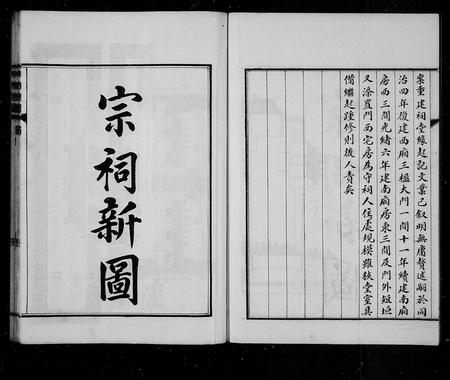 案重建祠堂緣起記文業已叙明無庸贅述嗣於同
治四年復建西廂三楹大門一間十一年續建南廂
房西三間光緒六年建南廂房東三間及門外短垣
又添置門西宅房為守祠人住處規模雖狹堂室具
備繼起踵修則後人責矣
宗祠新圖